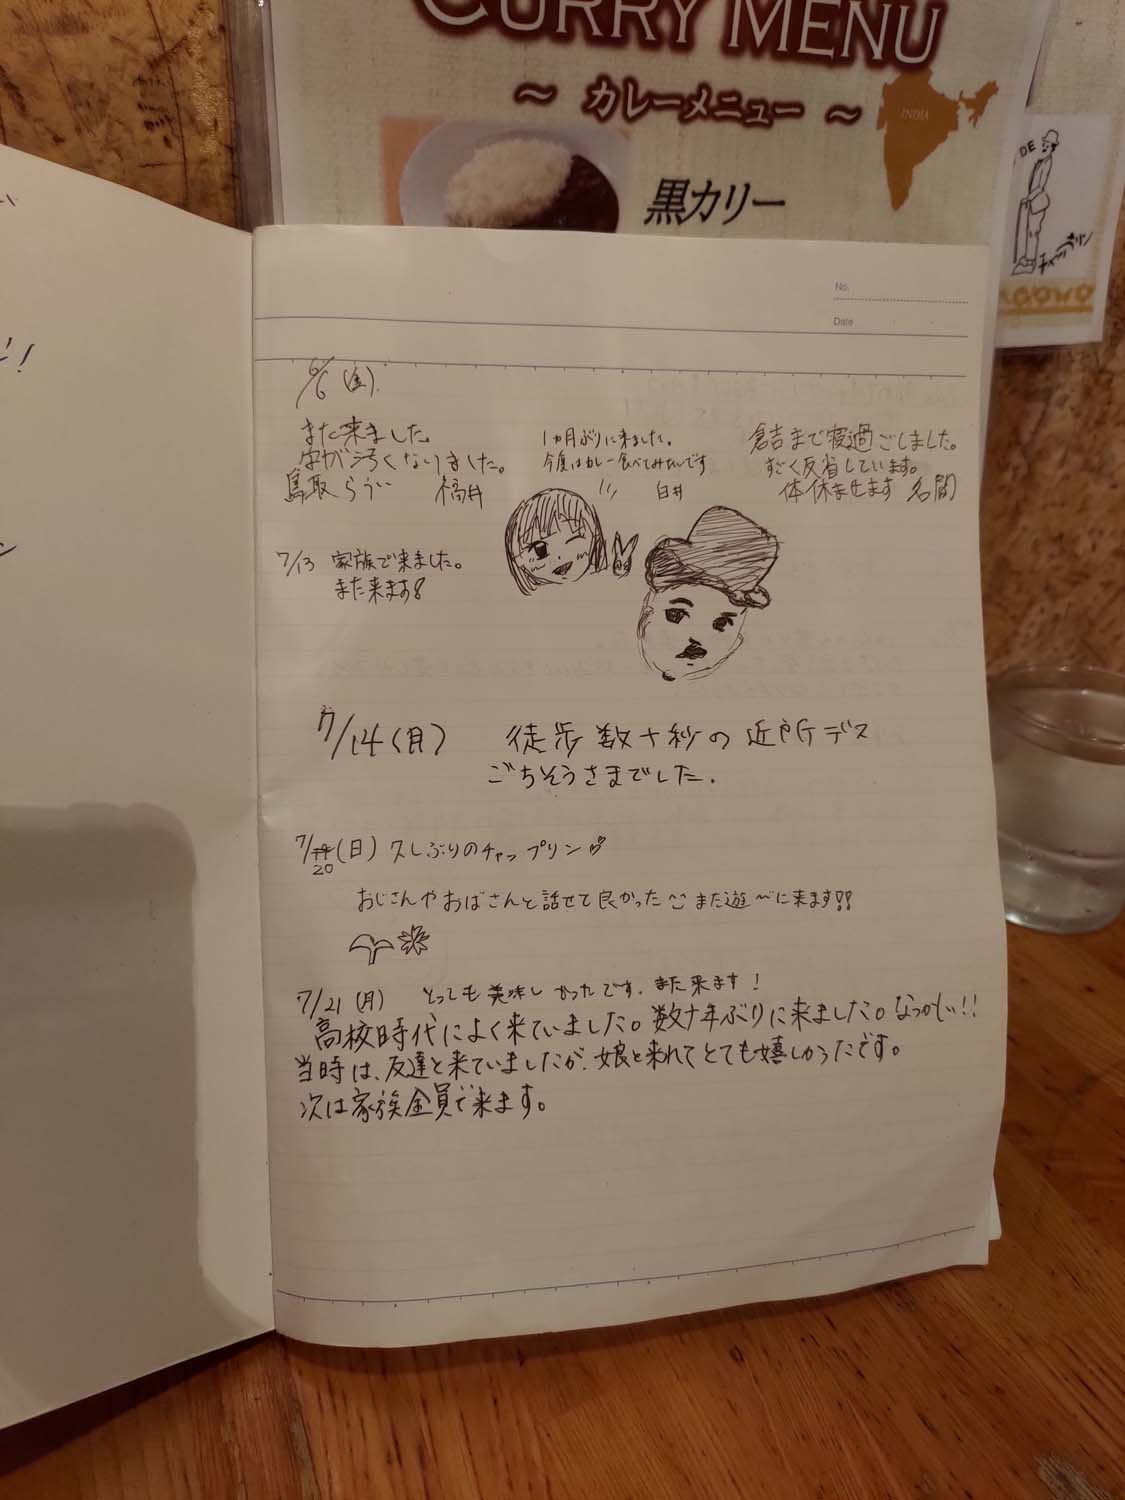 CURRY MENU
～ カレーメニュー ～
INDIA
黒カリー
DE
チャップリン
No.
Date
6/6 (金).
また来ました。
字が汚くなりました。
鳥取らうい 福井
1ヵ月ぶりに来ました。
今度はカレー食べてみたいです
白井
倉吉まで寝過ごしました。
すごく反省しています。
体休ませます 名間
7/13 家族で来ました。
また来ます!
7/14(月) 徒歩数十秒の近所デス
ごちそうさまでした.
7/20(日) 久しぶりのチャップリン♡
おじさんやおばさんと話せて良かった また遊〜に来ます!!
7/21(月) とっても美味しかったです. また来ます!
高校時代によく来ていました。数十年ぶりに来ました。なつかしい!!
当時は、友達と来ていましたが、娘と来れてとても嬉しかったです。
次は家族全員で来ます。